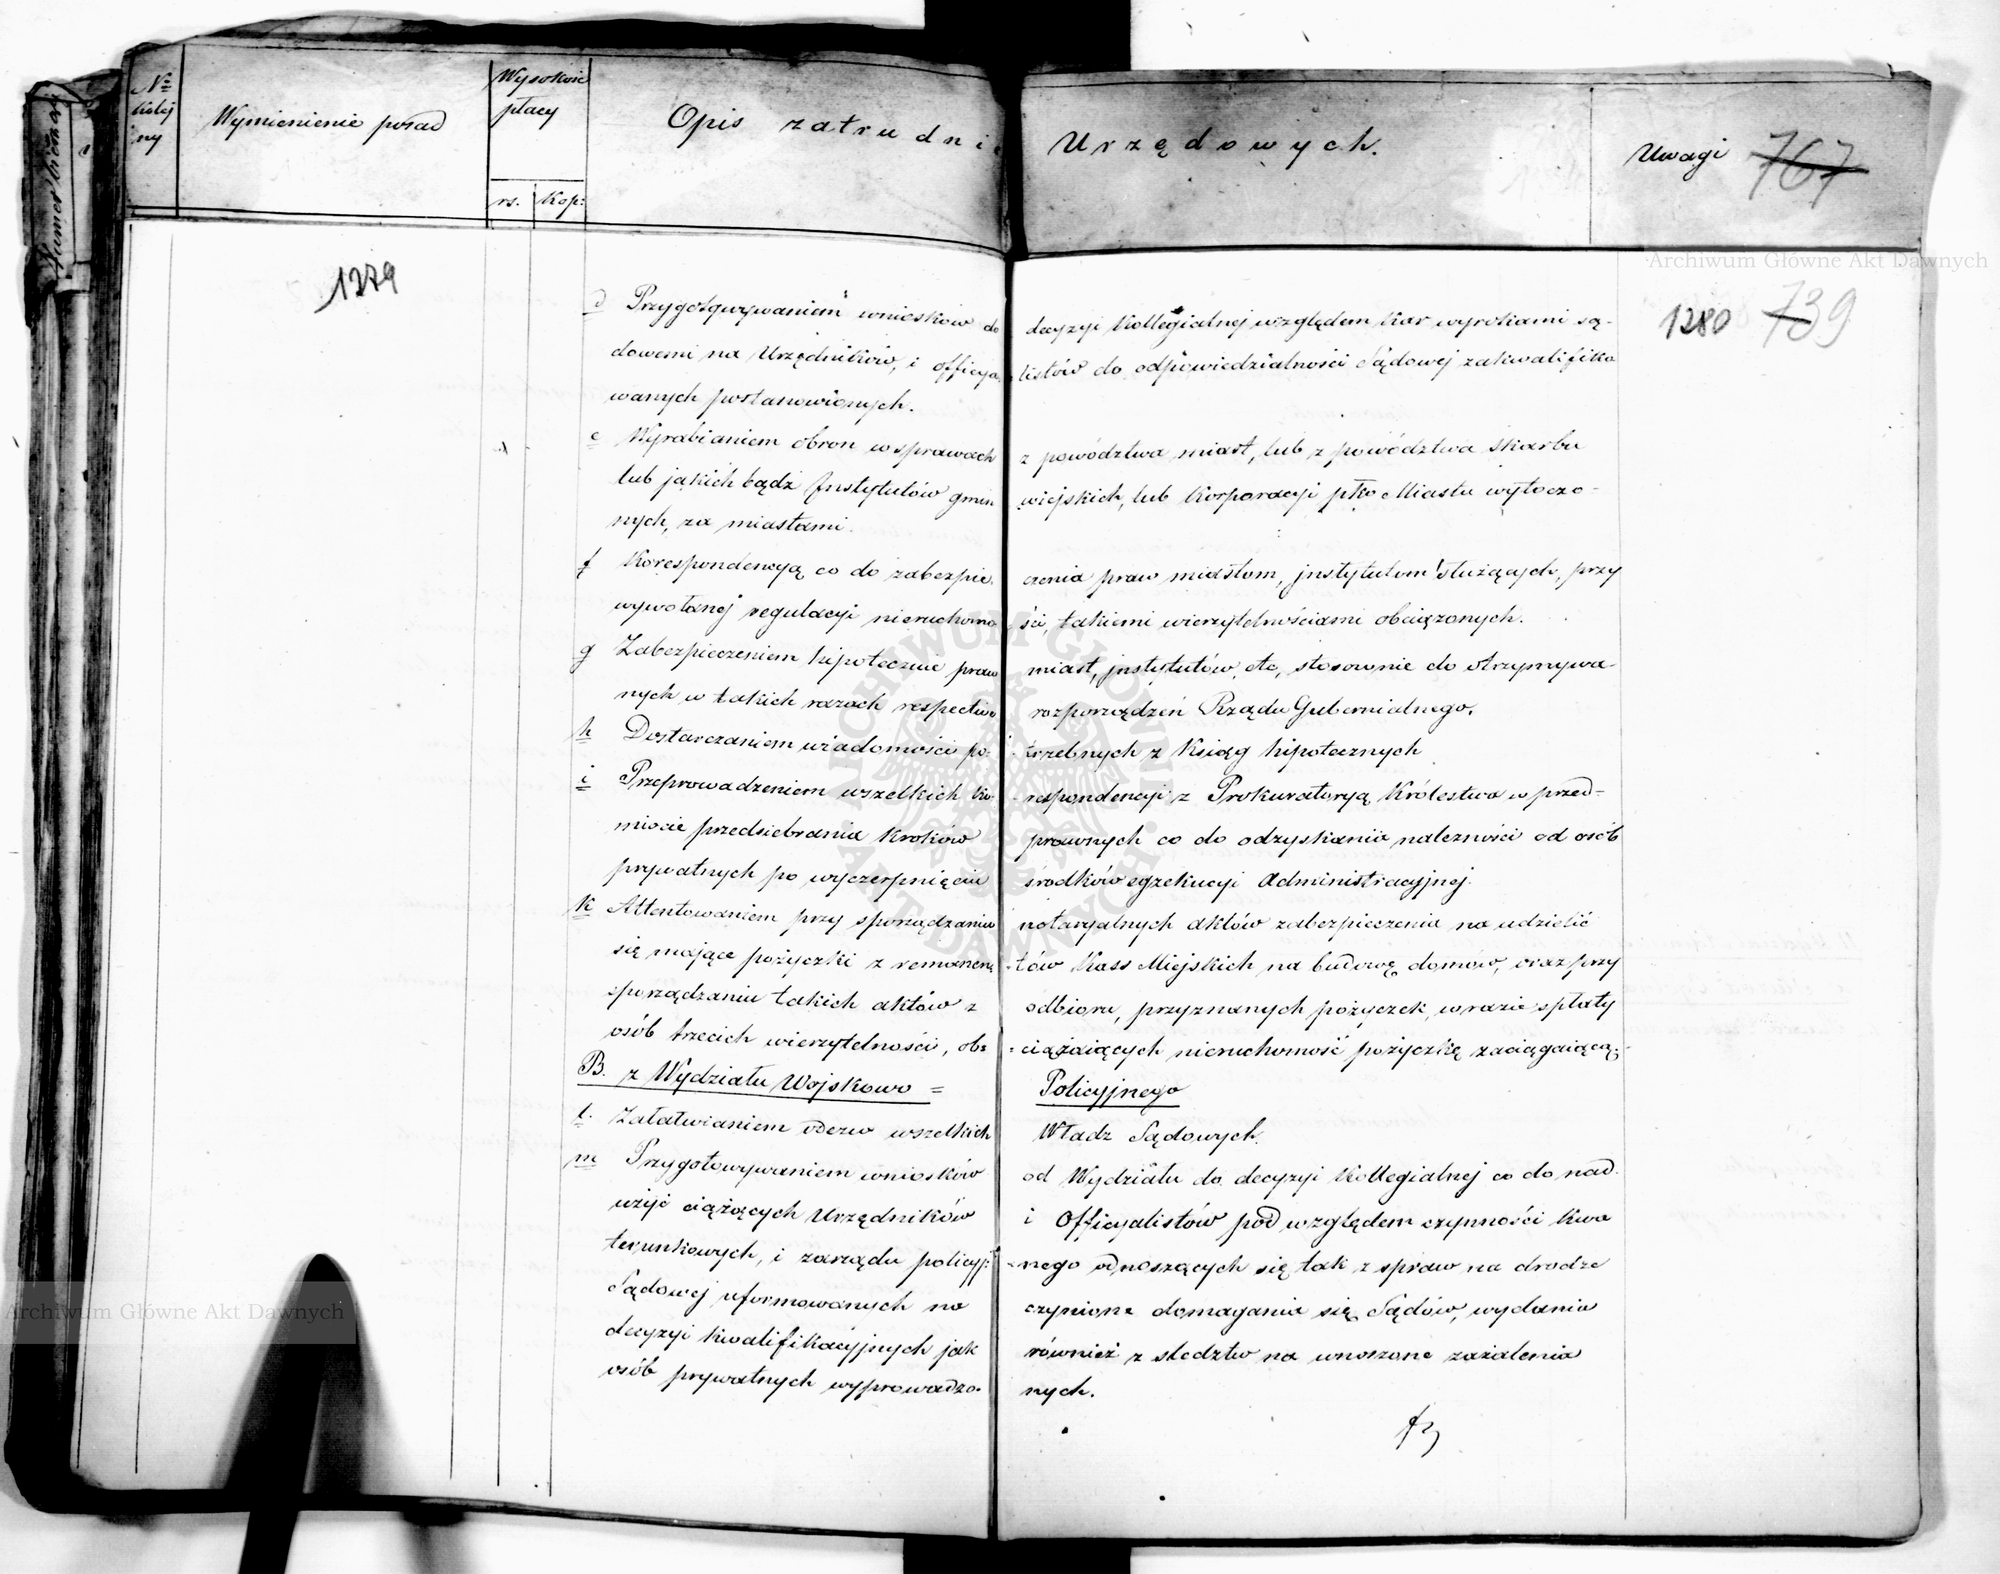 № kolej ny
Wymienienie posad
Wysokość płacy
rs. Kop:
Opis zatrudnie
Urzędowych.
Uwagi
767
1279
1280
739
Archiwum Główne Akt Dawnych
d Przygotowywaniem wniosków do decyzyi Kollegialnej względem kar wyrokami są-
dowemi na Urzędników, i officya- listów do odpowiedzialności Sądowej zakwalifiko
wanych postanowionych.
e Wyrabianiem obron w sprawach z powództwa miast, lub z powództwa skarbu
lub jakich bądź Instytutów gmin wiejskich, lub Korporacyi pko Miastu wytoczo-
nych, za miastami.
f Korespondencyą co do zabezpie- czenia praw miastom, instytutom służących, przy
wywołanej regulacyi nieruchomo- ści, takiemi wierzytelnościami obciążonych.
g Zabezpieczeniem hipotecznie praw miast, instytutów, etc, stosownie do otrzymywa-
nych w takich razach respective rozporządzeń Rządu Gubernialnego.
h Dostarczaniem wiadomości po- trzebnych z Ksiąg hipotecznych
i Przeprowadzeniem wszelkich ko- respondencyi z Prokuratoryą Królestwa w przed-
miocie przedsiebrania kroków prawnych co do odzyskania należności od osób
prywatnych po wyczerpnięciu środków egzekucyi Administracyjnej.
k Attentowaniem przy sporządzaniu notaryalnych aktów zabezpieczenia na udzielić
się mające pożyczki z remanen- tów Kass Miejskich na budowę domow, oraz przy
sporządzaniu takich aktów z odbioru, przyznanych pożyczek, w razie spłaty
osób trzecich wierzytelności, ob= =ciążaiących nieruchomość pożyczkę zaciągaiącą.
B. z Wydziału Wojskowo= Policyjnego
l. Załatwianiem odezw wszelkich Władz Sądowych.
m Przygotowywaniem wniosków od Wydziału do decyzyi Kollegialnej co do nad-
użyć ciążących Urzędników i Officyalistów pod względem czynności kwa
terunkowych, i zarządu policyj: =nego odnoszących się, tak z spraw na drodze
Sądowej uformowanych na czynione domagania się Sądów, wydania
decyzyi kwalifikacyjnych jak również z śledztw na wnoszone zażalenia
osób prywatnych wyprowadzo- nych.
Archiwum Główne Akt Dawnych
ARCHIWUM GŁÓWNE AKT DAWNYCH